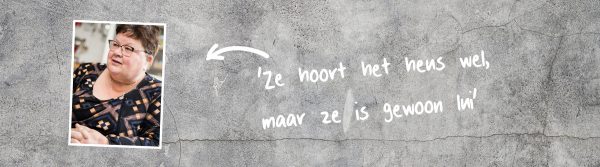 'Ze hoort het heus wel,
maar ze is gewoon lui'